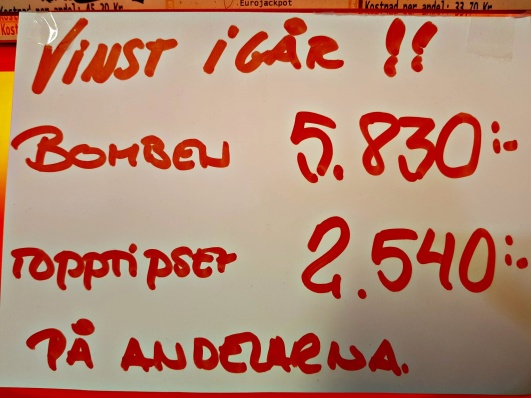 Kostnad per andel: 45,30 Kr
Eurojackpot
Kostnad per andel: 33,70 Kr
VINST IGÅR !!
BOMBEN 5.830:-
TOPPTIPSET 2.540:-
PÅ ANDELARNA.